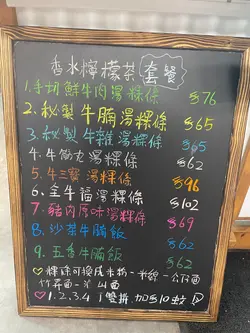 香水檸檬茶套餐
1.手切鮮牛肉湯粿條 $76
2.秘製牛腩湯粿條 $65
3.秘製牛雜湯粿條 $65
4.牛筋丸湯粿條 $62
5.牛三寶湯粿條 $96
6.全牛福湯粿條 $102
7.豬肉原味湯粿條 $69
8.沙茶牛腩飯 $62
9.五香牛腩飯 $62
♡粿條可換成米粉-米線-公仔面
竹昇面-
♡1.2.3.4 雙拼 加$10